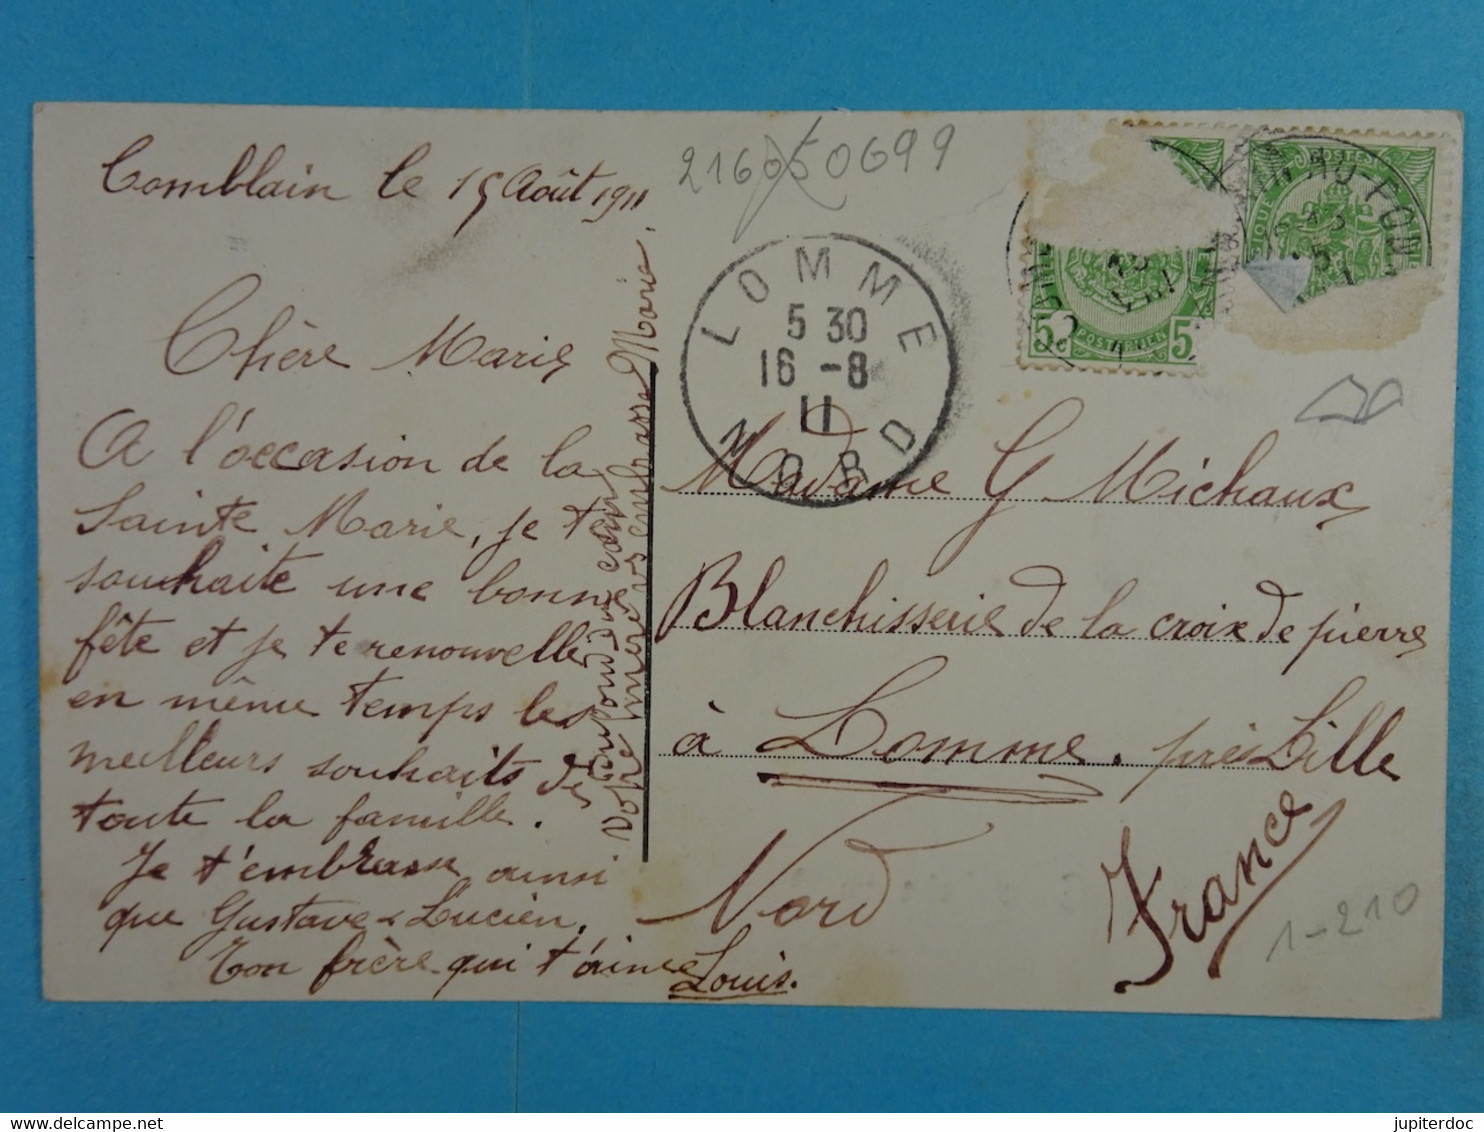 Comblain le 15 Août 1911
Chère Marie
A l'occasion de la
Sainte Marie, je te
souhaite une bonne
fête et je te renouvelle
en même temps les
meilleurs souhaits de
toute la famille.
Je t'embrasse ainsi
que Gustave & Lucien.
Ton frère qui t'aime
Louis.
votre mère vs embrasse Marie.
21605 0699
LOMME
5 30
16 -8
11
NORD
POSTES
AU-PON
5 5
POSTERIJEN
Madame G Michaux
Blanchisserie de la croix de pierre
à Lomme. près Lille
Nord
France
1-210
jupiterdoc